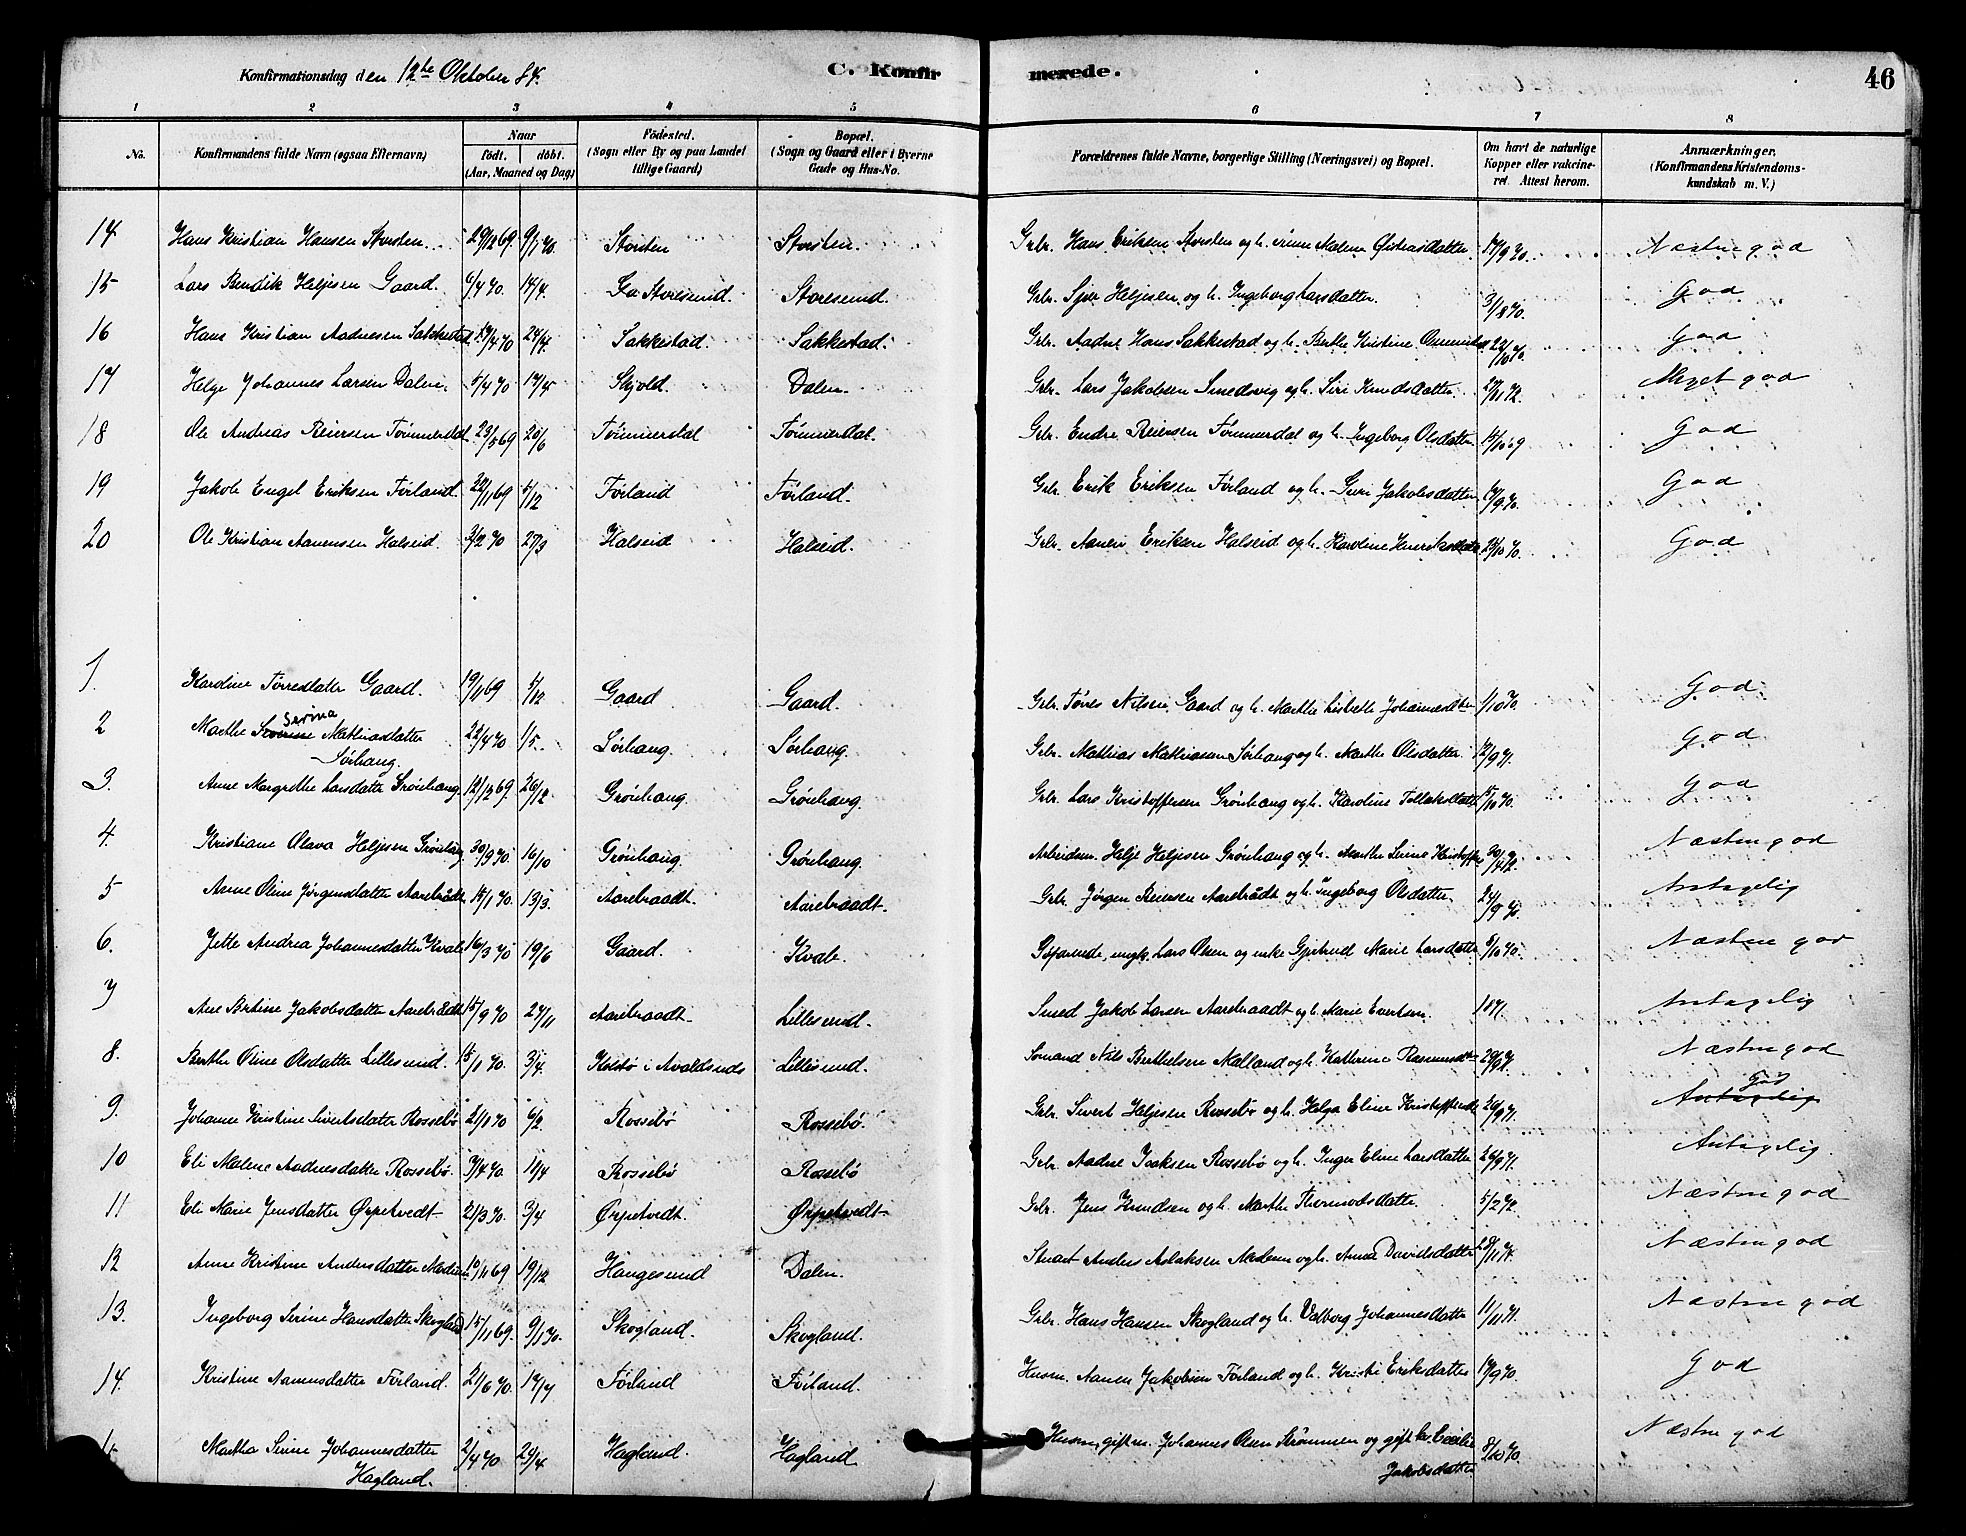 Konfirmationsdag den 12te Oktober 84.
C. Konfirmerede.
46
1 2 3 4 5 6 7 8
No. Konfirmandens fulde Navn (ogsaa Efternavn) Naar født. døbt. (Aar, Maaned og Dag) Fødested. (Sogn eller By og paa Landet tillige Gaard) Bopæl. (Sogn og Gaard eller i Byerne Gade og Hus-No. Forældrenes fulde Navne, borgerlige Stilling (Næringsvei) og Bopæl. Om havt de naturlige Kopper eller vakcineret. Attest herom. Anmærkninger. (Konfirmandens Kristendomskundskab m. V.)
14 Hans Kristian Hansen Storsten 29/12 69 9/1 70. Storsten Storsten. Grbr. Hans Eriksen Storsten og h. Malene Næsten god
15 Lars Bendik Heljesen Gaard. 6/4 70. 14/4. Storesund. Storesund. Grbr. Sjur Heljesen og h. Ingeborg Larsdatter. 3/8 70. God
16 Hans Kristian Aadnesen Sakkestad 24/4. Sakkestad. Sakkestad. Grbr. Aadne Hans Sakkestad og h. Berthe Kristine God
17 Helge Johannes Larsen Dalen 5/4 70 Skjold. Dalen. Grbr. Lars Jakobsen Smedsvig og h. Siri Knudsdatter. Meget god
18 Ole Andreas Reiersen Tømmerdal 23/5 69 20/6 Tømmerdal Tømmerdal. Grbr. Endre Reiersen Tømmerdal og h. Ingeborg Olsdatter God
19 Jakob Engel Eriksen Førland. 5/12 Førland Førland. Grbr. Erik Eriksen Førland og h. Siri Jakobsdatter God
20 Ole Kristian Aanensen Halseid. 3/2 70 27/3 Halseid Halseid. Grbr. Aanen Eriksen Halseid og h. Karoline God
1. Karoline Tørresdatter Gaard. 19/11 69 5/12 Gaard Gaard. Grbr. Tørres Nilsen Gaard og h. Marthe Lisbeth Johannesdtr 1/10 70. God
2 Marthe Serina Mathiasdatter Sørhaug. 22/4 70 1/5. Sørhaug. Sørhaug. Grbr. Mathias Mathiasen Sørhaug og h. Marthe Olsdatter. 12/9 71. God
3. Anne Margrethe Larsdatter Grønhaug 12/12 69. 26/12 Grønhaug. Grønhaug. Grbr. Lars Kristoffersen Grønhaug og h. Karoline God
4. Kristiane Olava Heljesen Grønhaug 30/9 70. 16/10 Grønhaug. Grønhaug. Arbeidsm. Helje Heljesen Grønhaug og h. Marthe Serine Næsten god
5 Anne Oline Jørgensdatter Aarebrådt 13/3. Aarebraadt. Aarebraadt. Grbr. Jørgen Reiersen Aarebrådt og h. Ingeborg Olsdatter. Antagelig
6. Jette Andrea Johannesdatter Kvale 16/3 70 19/6 Gaard. Kvale. Lars Olsen og enke Gjertrud Marie Larsdatter Næsten god
7 Ane Bertine Jakobsdatter Aarebrådt 15/9 70 27/11 Aarebraadt. Lillesund. Smed Jakob Larsen Aarebraadt og h. Marie Evertsen. 1871. Antagelig
8. Berthe Oline Olsdatter Lillesund. 15/1 70. 3/4. Kolstø i Avaldsnds Lillesund. Sømand Nils Berthelsen Mælland og h. Katherine Rasmusdtr Næsten god
9. Johanne Kristine Sivertsdatter Rossebø 2/1 70 6/2 Rossebø Rossebø. Grbr. Sivert Heljesen Rossebø og h. Helga Eline Antagelig God
10 Eli Malene Aadnesdatter Rossebø. Rossebø Rossebø Grbr. Aadne Isaksen Rossebø og h. Inger Eline Larsdatter 26/9 71. Antagelig.
11 Eli Marie Jensdatter Ørpetvedt 2/3 70. 3/4 Ørpetvedt. Ørpetvedt Grbr. Jens Knudsen og h. Marthe Thormodsdatter. 5/2 72. Næsten god
12 Anne Kristine Andersdatter 19/12 Haugesund Dalen. Anders Aslaksen og h. Anna Davidsdatter Næsten god
13. Ingeborg Serine Hansdatter Skogland 15/11 69 9/1 70. Skogland. Skogland. Grbr. Hans Hansen Skogland og h. Valborg Johannesdatter 11/11 71. Næsten god
14. Kristine Aanensdatter Førland. 2/6 70. 17/7 Førland Førland. Husm. Aanen Jakobsen Førland og h. Kristi Eriksdatter God
15 Martha Serine Johannesdatter Hagland. 2/4 70 24/4 Hagland. Hagland Husm. gift m. Johannes Olsen Strømmen og gift kv. Cecilie Jakobsdatter 8/10 70. Næsten god